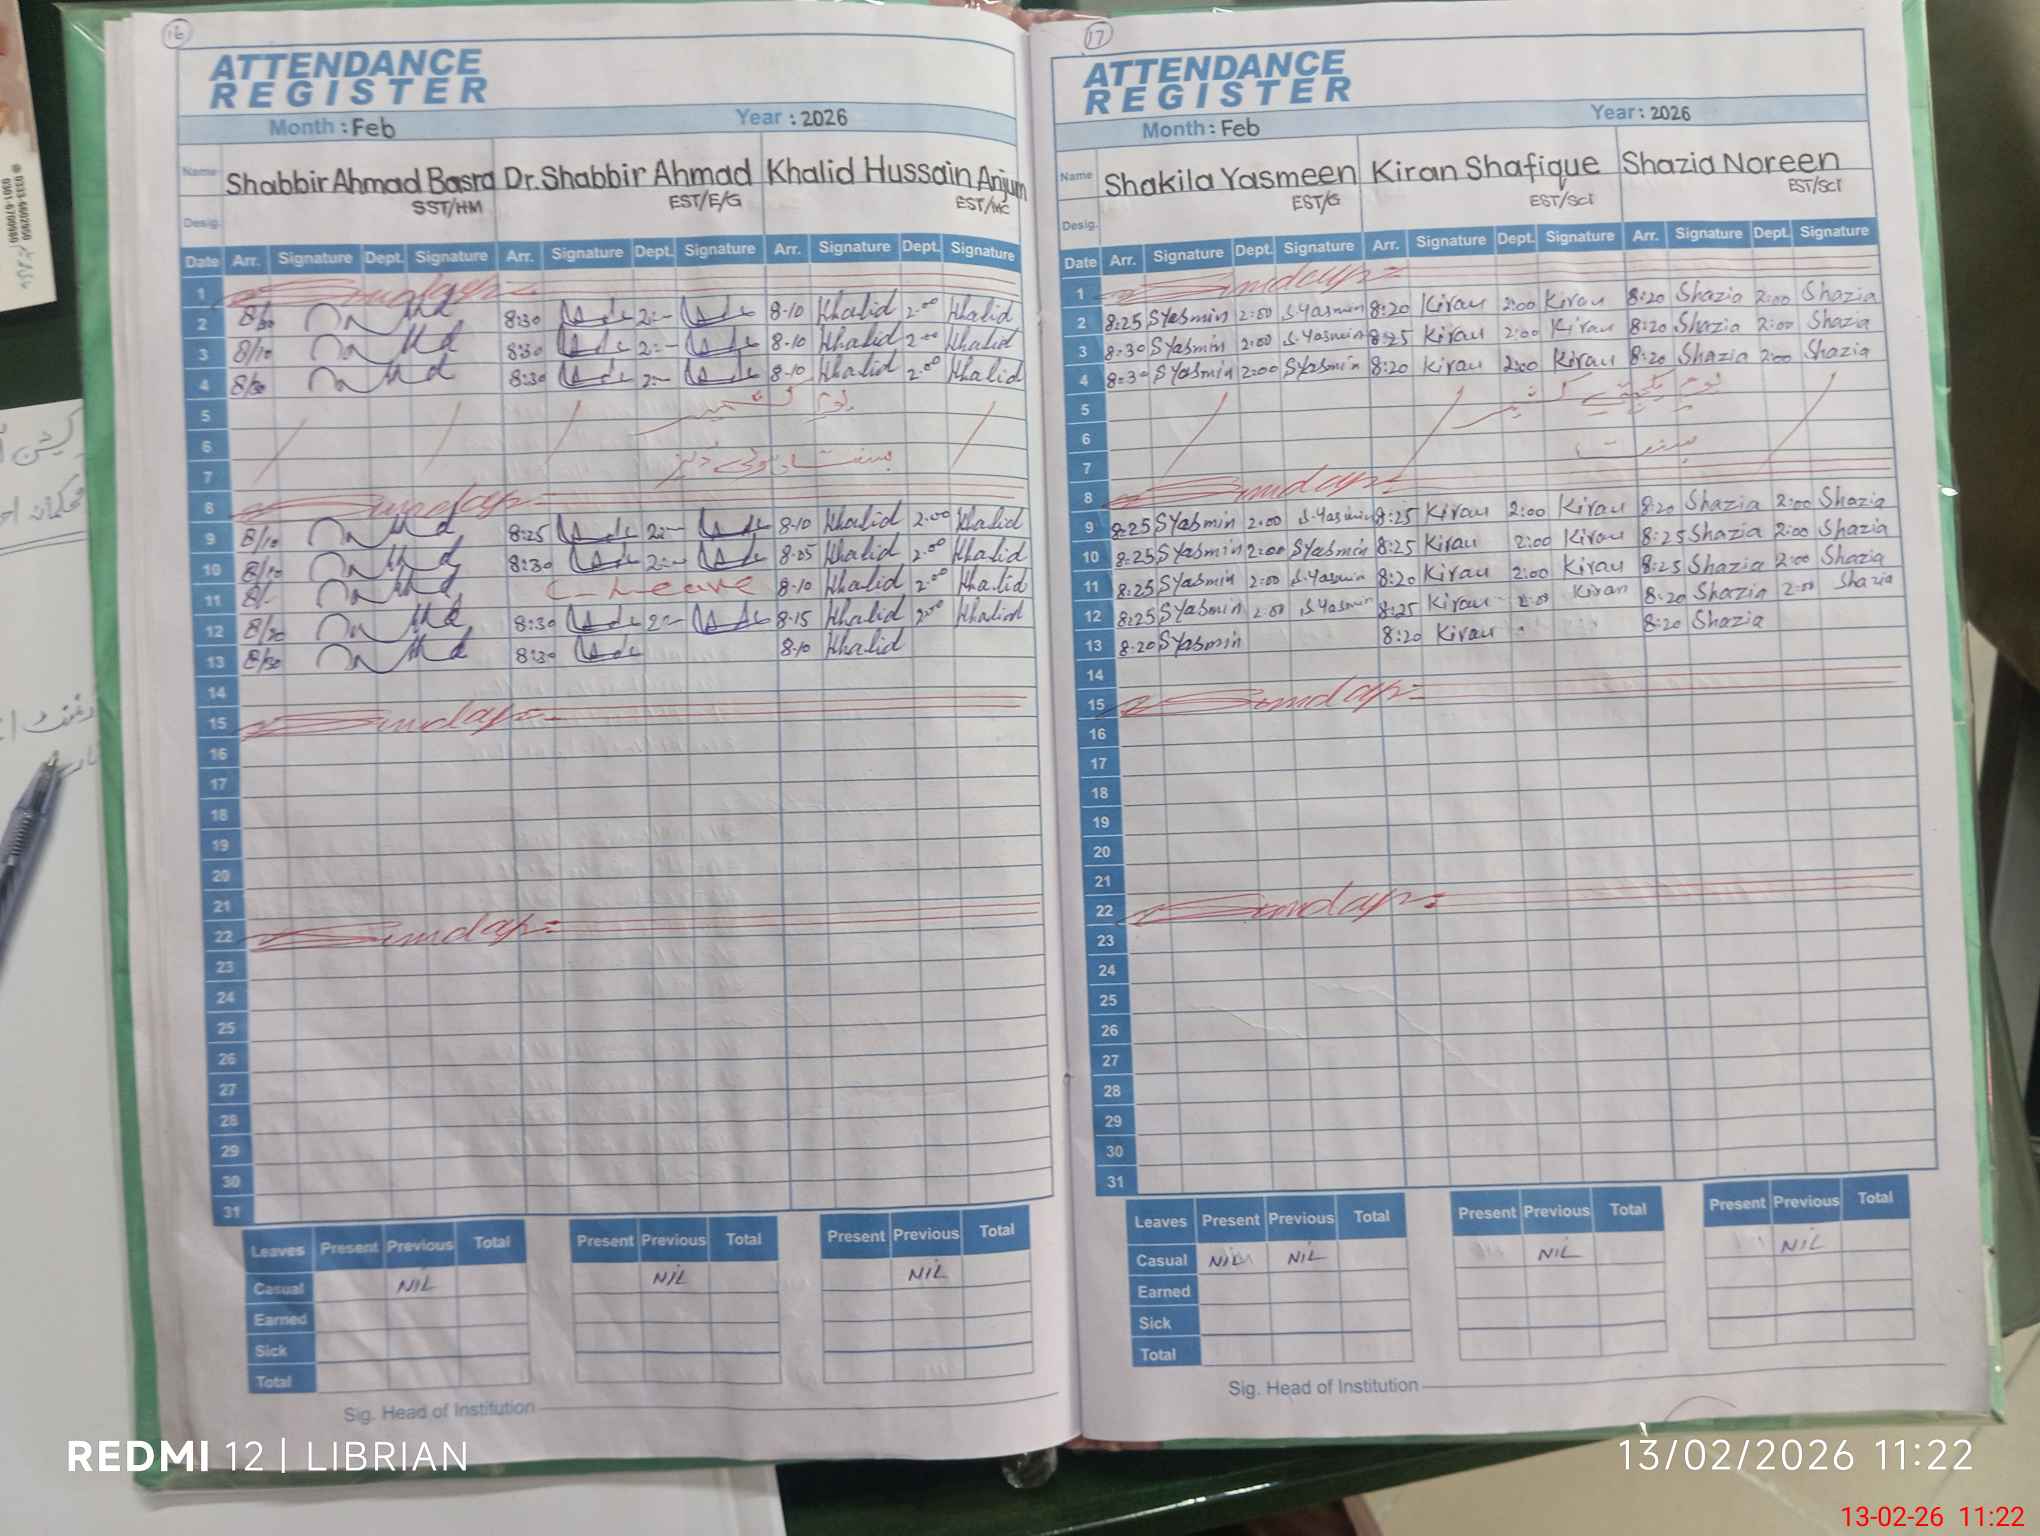 16
ATTENDANCE
REGISTER
Month : Feb Year : 2026
Name Shabbir Ahmad Basra Dr. Shabbir Ahmad Khalid Hussain Anjum
SST/HM EST/E/G
Desig.
Date Arr. Signature Dept. Signature Arr. Signature Dept. Signature Arr. Signature Dept. Signature
1 Sunday
2 8:30 8-10 Khalid 2.00 Khalid
3 8/10 8:30 8-10 Khalid 2.00 Khalid
4 8:30 8-10 Khalid 2.00 Khalid
5 یوم کشمیر
6
7
8 Sunday
9 8/10 8:25 8-10 Khalid 2.00 Khalid
10 8/10 8:30 8-05 Khalid 2.00 Khalid
11 8/- C-Leave 8-10 Khalid 2.00 Khalid
12 8/20 8:30 8-15 Khalid 2.00 Khalid
13 8/30 8:30 8-10 Khalid
14
15 Sunday
16
17
18
19
20
21
22 Sunday
23
24
25
26
27
28
29
30
31
Leaves Present Previous Total Present Previous Total Present Previous Total
Casual NIL NIL NIL
Earned
Sick
Total
Sig. Head of Institution
17
ATTENDANCE
REGISTER
Month : Feb Year : 2026
Name Shakila Yasmeen Kiran Shafique Shazia Noreen
EST/G EST/SCI EST/SCI
Desig.
Date Arr. Signature Dept. Signature Arr. Signature Dept. Signature Arr. Signature Dept. Signature
1 Sunday
2 8:25 SYasmin 2:00 S.Yasmin 8:20 Kiran 2:00 Kiran 8:20 Shazia 2:00 Shazia
3 8:30 SYasmin 2:00 S.Yasmin 8:25 Kiran 2:00 Kiran 8:20 Shazia 2:00 Shazia
4 8:30 SYasmin 2:00 SYasmin 8:20 Kiran 2:00 Kiran 8:20 Shazia 2:00 Shazia
5
6 بسنت
7
8 Sunday
9 8:25 SYasmin 2:00 S.Yasmin 8:25 Kiran 2:00 Kiran 8:20 Shazia 2:00 Shazia
10 8:25 SYasmin 2:00 SYasmin 8:25 Kiran 2:00 Kiran 8:25 Shazia 2:00 Shazia
11 8:25 SYasmin 2:00 S.Yasmin 8:20 Kiran 2:00 Kiran 8:25 Shazia 2:00 Shazia
12 8:25 SYasmin 2:00 S.Yasmin 8:25 Kiran 2:00 Kiran 8:20 Shazia 2:00 Shazia
13 8:20 SYasmin 8:20 Kiran 8:20 Shazia
14
15 Sunday
16
17
18
19
20
21
22 Sunday
23
24
25
26
27
28
29
30
31
Leaves Present Previous Total Present Previous Total Present Previous Total
Casual NIL NIL NIL NIL
Earned
Sick
Total
Sig. Head of Institution
REDMI 12 | LIBRIAN
13/02/2026 11:22
13-02-26 11:22